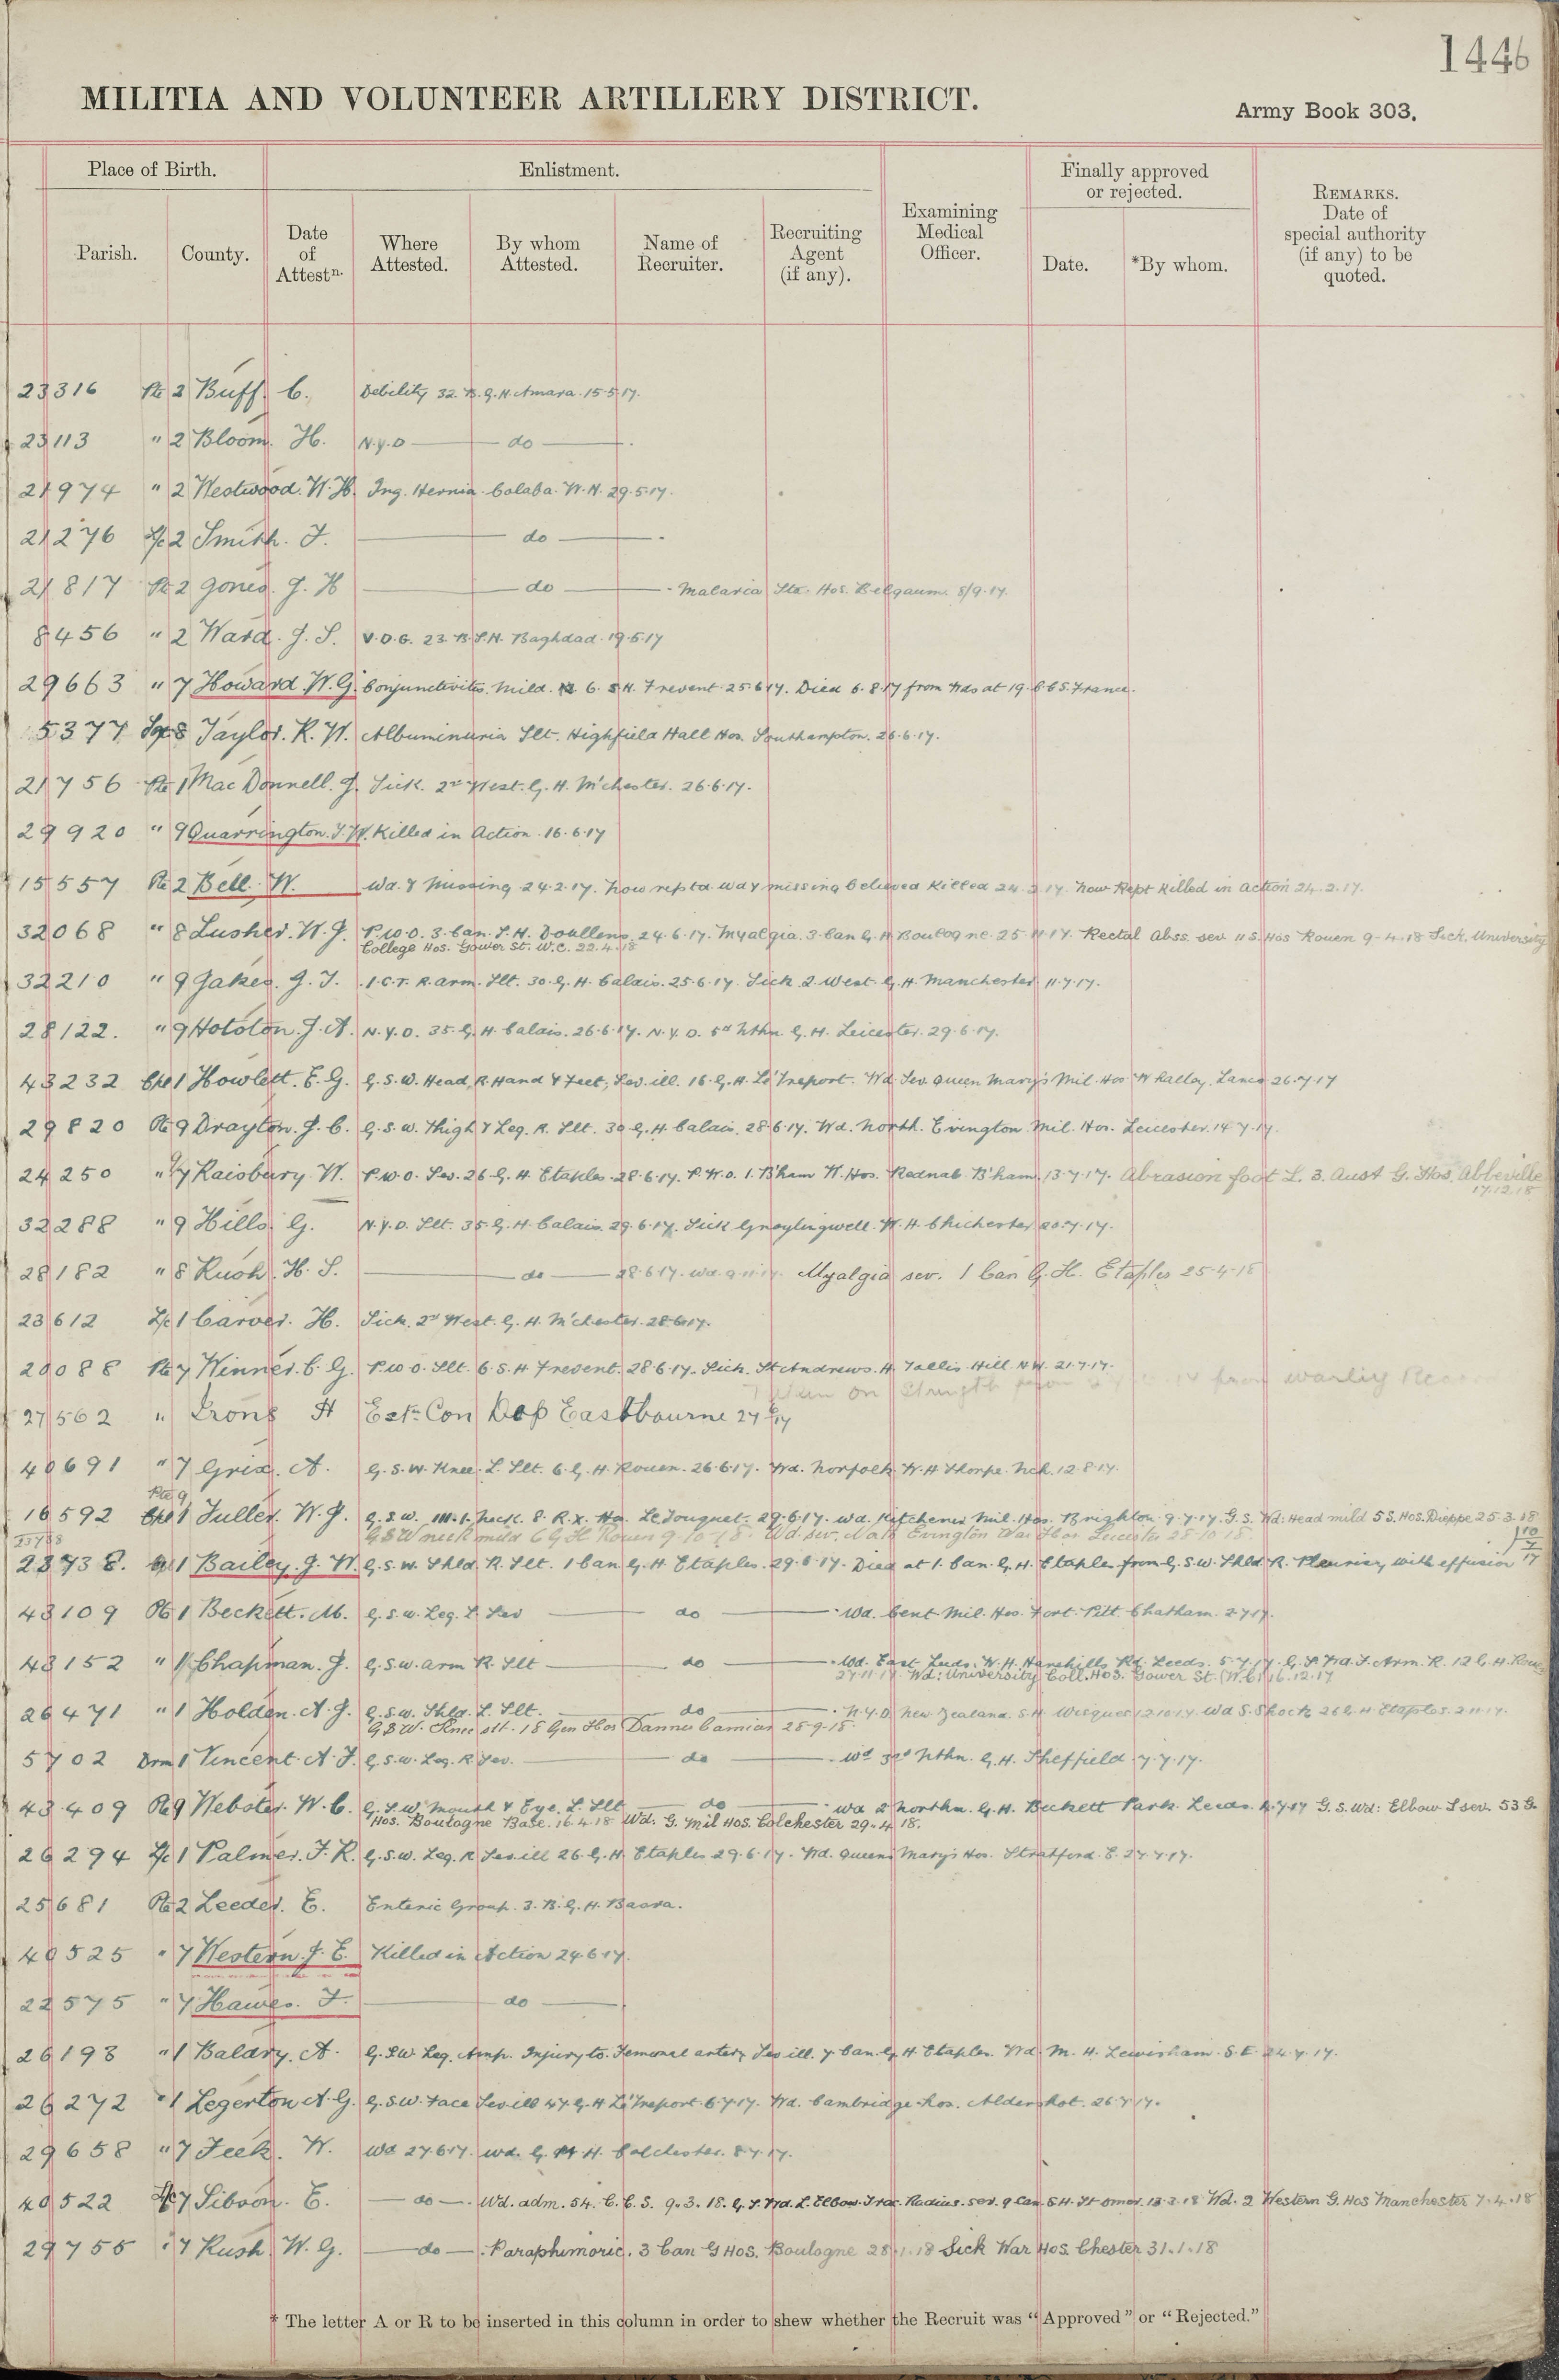 1446
MILITIA AND VOLUNTEER ARTILLERY DISTRICT.
Army Book 303.
Place of Birth.
Enlistment.
Finally approved or rejected.
Parish.
County.
Date of Attestn.
Where Attested.
By whom Attested.
Name of Recruiter.
Recruiting Agent (if any).
Examining Medical Officer.
Date.
*By whom.
REMARKS. Date of special authority (if any) to be quoted.
23316 Pte 2 Buff. C. Debility 32. B.G.H. Amara. 15.5.17.
23113 " 2 Bloom. H. N.Y.D — do —.
21974 " 2 Westwood. W.H. Ing. Hernia. Colaba. W.H. 29.5.17.
21276 L/c 2 Smith. F. — do —.
21817 Pte 2 Jones. J. H — do —. Malaria Sta. Hos. Belgaum. 5/9.17.
8456 " 2 Ward. J. S. V.D.G. 23. B.S.H. Baghdad. 19.5.17
29663 " 7 Howard. W.G. Conjunctivitis. Mild. 6. S.H. Frevent. 25.6.17. Died 5.8.17 from Wds at 19. C.C.S. France.
5377 8 Taylor. R. W. Albuminuria Slt. Highfield Hall Hos. Southampton. 26.6.17.
21756 Pte 1 MacDonnell. J. Sick. 2nd West. G. H. M'chester. 26.6.17.
29920 " 9 Quarrington. T.W. Killed in Action. 16.6.17
15557 Pte 2 Bell. W. Wd. & Missing 24.2.17. Now reptd wd & missing believed Killed 24.2.17. Now Rept Killed in action 24.2.17.
32068 " 8 Lusher. W.J. P.U.O. 3. Can. S.H. Doullens. 24.6.17. Myalgia. 3 Can G.H Boulogne. 25 11 17. Rectal Abss. sev 11 S. Hos Rouen 9-4.18 Sick. University
College Hos. Gower St. W.C. 22.4.18
32210 " 9 Jakes. J. T. I.C.T. R. arm. Slt. 30. G. H. Calais. 25.6.17. Sick. 2. West. G. H. Manchester 11.7.17.
28122. " 9 Hotston. J. A. N.Y.D. 35. G. H. Calais. 26.6.17. N.Y.D. 5th Nthn. G. H. Leicester. 29.6.17.
43232 Cpl 1 Howlett. E. G. G.S.W. Head, R. Hand & Feet, Sev. ill. 16. G.H. Le Treport. Wd Sev. Queen Mary's Mil. Hos Whalley. Lancs 26.7.17
29820 Pte 9 Drayton. J. C. G.S.W. Thigh & Leg. R. Slt. 30 G.H. Calais. 28.6.17. Wd. North. Evington. Mil. Hos. Leicester. 14.7.17.
24250 " 7 Raisbury. W. P.U.O. Sev. 26. G. H. Etaples. 28.6.17. P.U.O. 1. B'ham W. Hos. Rednal. B'ham 13.7.17. Abrasion foot L. 3. Aust G. Hos. Abbeville
17.12.18
32288 " 9 Hills. G. N.Y.D. Slt. 35. G. H. Calais. 29.6.17. Sick Graylingwell. W.H. Chichester 20.7.17.
28182 " 8 Rush. H. S. — do — 28.6.17. Wd. 9.11.17. Myalgia sev. 1 Can G. H. Etaples 25-4-18
23612 L/c 1 Carver. H. Sick. 2nd West. G. H. M'chester. 28.6.17.
20088 Pte 7 Winner. C. G. P.U.O. Slt. 6. S. H Frevent. 28.6.17. Sick. St Andrews. H. Dollis. Hill. N.W. 21.7.17.
Taken on Strength from
27562 " Irons H Estn Con Dep Eastbourne 27 6/17
40691 " 7 Grix. A. G.S.W. Knee. L. Slt. 6. G. H. Rouen. 26.6.17. Wd. Norfolk W.H Thorpe. Nch. 12.8.17.
Pte 9
16592 Cpl 1 Fuller. W. J. G.S.W. Neck. 8. R.X. Hos. Le Touquet. 29.6.17. Wd. Kitchener Mil. Hos. Brighton. 9.7.17. G.S. Wd: Head mild 5 S. Hos. Dieppe 25.3.18
G S W neck mild 6 G H Rouen 9 10 18. Wd. sev. Nth Evington War Hos. Leicester 25 10 18
23738. 1 Bailey. J. W. G.S.W. Shld R. Slt. 1 Can G. H Etaples. 29.6.17. Died at 1. Can. G. H. Etaples from G.S.W. Shld R. Pleurisy with effusion 10/7/17
43109 Pte 1 Beckett. M. G.S.W. Leg. L. Sev — do —. Wd. Cent Mil. Hos. Fort. Pitt Chatham. 2.7.17.
43152 " 1 Chapman. J. G.S.W. Arm R. Slt — do —. Wd. East Leeds. W.H. Harehills Rd. Leeds. 5.7.17. G.S. Wd. F. Arm. R. 12 G. H. Rouen
27 11 17. Wd: University Coll. Hos. Gower St. (W.C) 16.12.17
26471 " 1 Holden. A. J. G.S.W. Shld. L. Slt. — do —. N.Y.D. New Zealand. S.H. Wisques 12.10.17. Wd S. Shock. 26 G. H Etaples. 2.11.17.
G S W. Knee slt. 18 Gen Hos Dannes Camiers 28-9-18
5702 Drm 1 Vincent. A. F. G.S.W. Leg. R. Sev. — do —. Wd 3rd Nthn. G. H. Sheffield 7.7.17.
43409 Pte 9 Webster. W. C. G.S.W. Mouth & Eye. L. Slt — do —. Wd 2 Northn. G. H. Beckett Park. Leeds. 4.7.17 G.S. Wd: Elbow L sev. 53 G.
Hos. Boulogne Base. 16.4.18 Wd. G. Mil Hos. Colchester 29.4.18.
26294 L/c 1 Palmer. F. R. G.S.W. Leg. R Sev ill 26. G. H Etaples 29.6.17. Wd. Queen Mary's Hos. Stratford. E. 27.7.17.
25681 Pte 2 Leeder. E. Enteric Group. 3. B.G.H. Basra.
40525 " 7 Western. J. E. Killed in Action 24.6.17.
22575 " 7 Hawes. F. — do —
26193 " 1 Baldry. A. G.S.W. Leg. Amp. Injury to. Femoral artery Sev ill. 7 Can. G. H Etaples. Wd. M. H. Lewisham. S.E. 24.7.17.
26272 " 1 Legerton A. G. G.S.W. Face Sev ill 47. G. H Le Treport. 6.7.17. Wd. Cambridge Hos. Aldershot. 26.7.17.
29658 " 7 Feek. W. Wd 27.6.17. Wd. G. M H. Colchester. 8.7.17.
40522 L/c 7 Sibson. E. — do —. Wd. adm. 54. C.C.S. 9.3.18. G.S. Wd. L. Elbow. Frac. Radius. sev. 9 Can. S H. St Omer. 13.3.18 Wd. 2 Western G. Hos Manchester 7.4.18
29755 " 7 Rush. W. G. — do —. Paraphimosis. 3 Can G Hos. Boulogne 28.1.18 Sick War Hos. Chester 31.1.18
* The letter A or R to be inserted in this column in order to shew whether the Recruit was "Approved" or "Rejected."